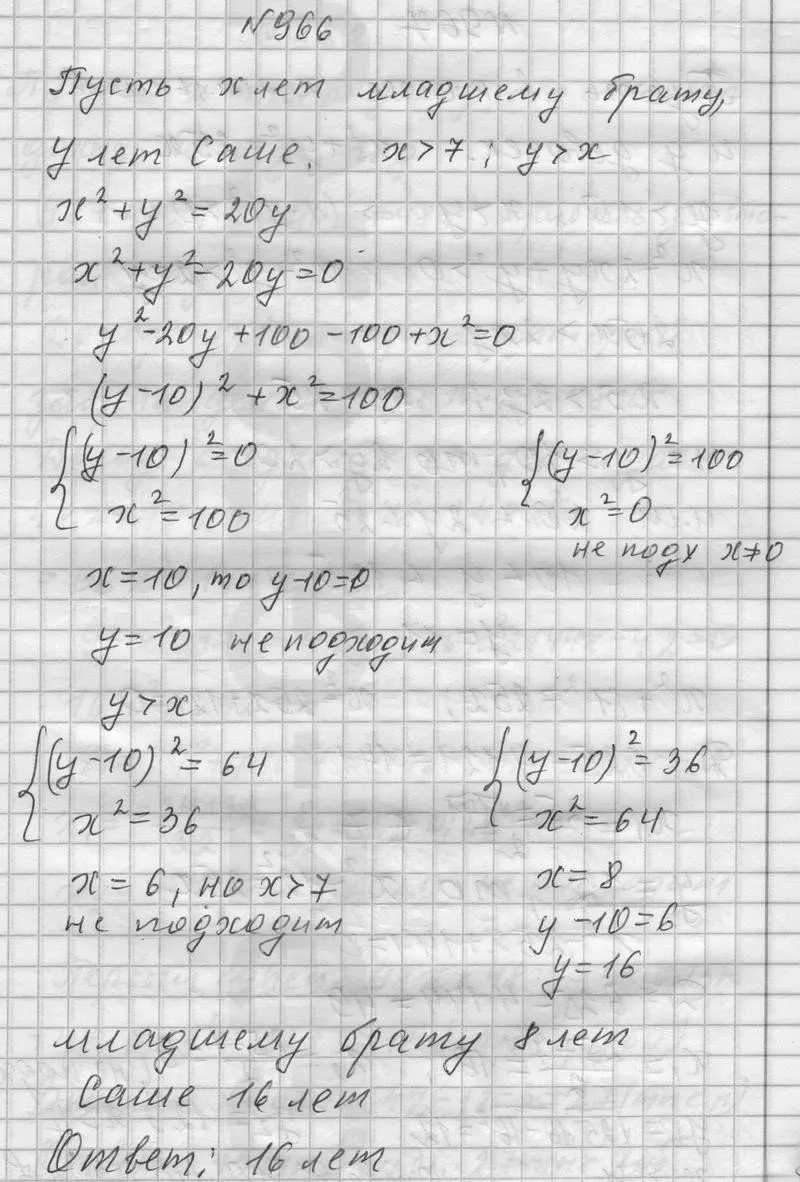 N966
Пусть x лет младшему брату,
y лет Саше. x>7; y>x
x²+y²=20y
x²+y²-20y=0
y²-20y+100-100+x²=0
(y-10)²+x²=100
{(y-10)²=0
x²=100
x=10, то y-10=0
y=10 не подходит
y>x
{(y-10)²=100
x²=0
не подх x≠0
{(y-10)²=64
x²=36
x=6, но x>7
не подходит
{(y-10)²=36
x²=64
x=8
y-10=6
y=16
младшему брату 8 лет
Саше 16 лет
Ответ: 16 лет